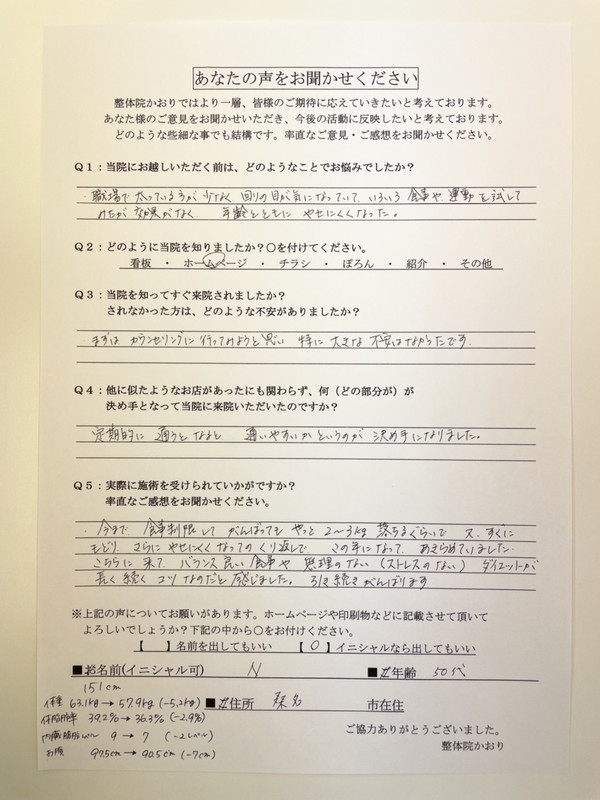 あなたの声をお聞かせください
整体院かおりではより一層、皆様のご期待に応えていきたいと考えております。
あなた様のご意見をお聞かせいただき、今後の活動に反映したいと考えております。
どのような些細な事でも結構です。率直なご意見・ご感想をお聞かせください。
Q1：当院にお越しいただく前は、どのようなことでお悩みでしたか？
・職場で太っている方が少なく、回りの目が気になっていて、いろいろ食事や運動を試して
みたが効果がなく、年齢とともにやせにくくなった。
Q2：どのように当院を知りましたか？〇を付けてください。
看板 ・ ホームページ ・ チラシ ・ ぽろん ・ 紹介 ・ その他
Q3：当院を知ってすぐ来院されましたか？
されなかった方は、どのような不安がありましたか？
まずは カウンセリングに行ってみようと思い 特に大きな不安はなかったです.
Q4：他に似たようなお店があったにも関わらず、何（どの部分が）が
決め手となって当院に来院いただいたのですか？
定期的に通うとなると 通いやすいかというのが決め手になりました。
Q5：実際に施術を受けられていかがですか？
率直なご感想をお聞かせください。
・今まで、食事制限して がんばっても やっと2～3kg 落ちるぐらいで 又、すぐに
もどり、さらにやせにくくなってのくり返しで、この年になって、あきらめていました.
こちらに来て、バランス良い食事や 無理のない(ストレスのない) ダイエットが
長く続くコツなのだと感じました。引き続きがんばります
※上記の声についてお願いがあります。ホームページや印刷物などに記載させて頂いて
よろしいでしょうか？下記の中から〇をお付けください。
【 】名前を出してもいい 【〇】イニシャルなら出してもいい
■お名前(イニシャル可) N ■年齢 50代
151cm
体重 63.1kg→57.9kg(-5.2kg) ■住所 桑名 市在住
体脂肪率 39.2%→36.3%(-2.9%)
内臓脂肪レベル 9→7 (-2レベル)
お腹 97.5cm→90.5cm(-7cm)
ご協力ありがとうございました。
整体院かおり